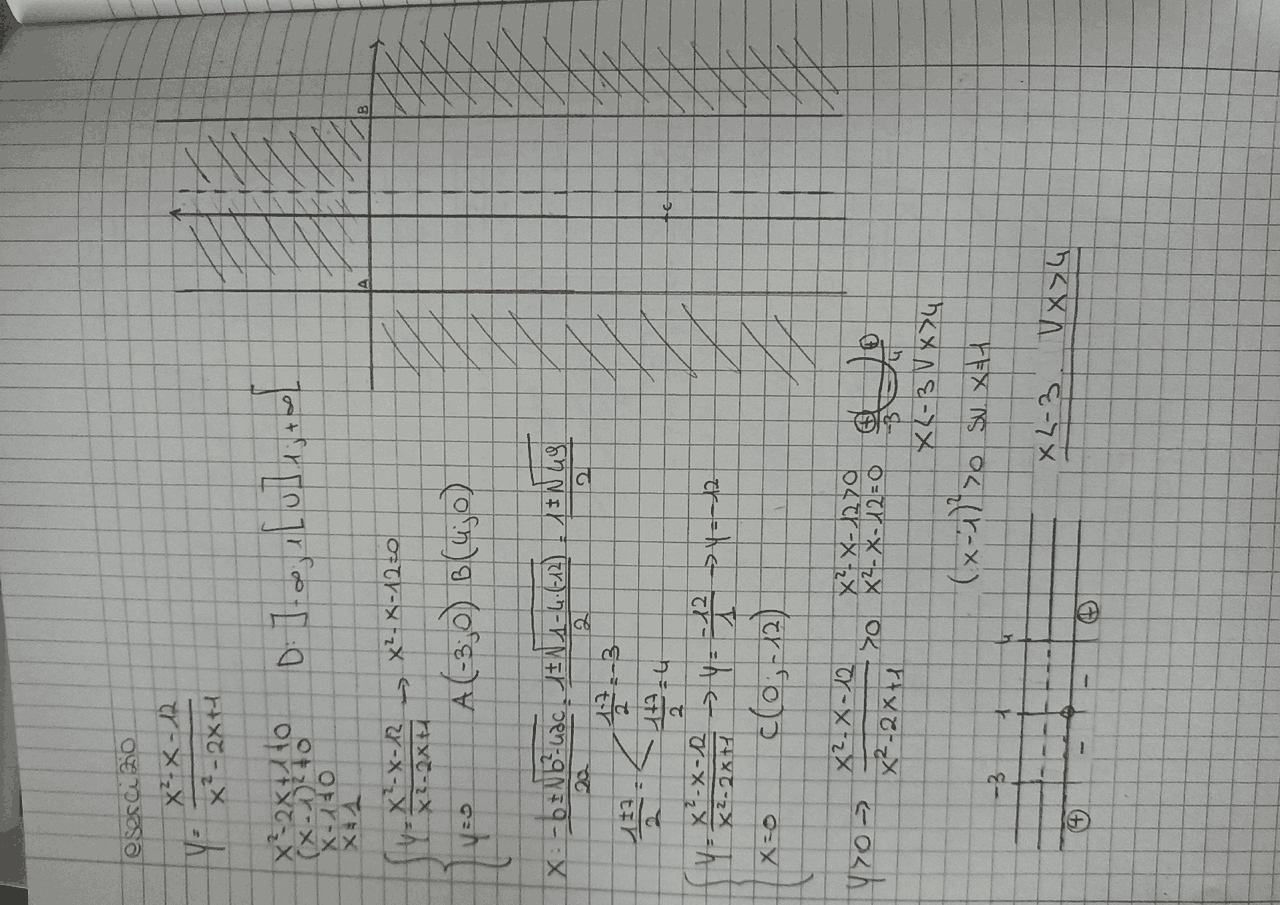 esercizio
y = x²-x-12 / x²-2x+1
x²-2x+1≠0
D: ]-∞; 1[ ∪ ]1; +∞[
(x-1)²≠0
x-1≠0
x≠1
{ y = x²-x-12 / x²-2x+1 → x²-x-12=0
y=0
A(-3;0) B(4;0)
x: -b±√b²-4ac / 2a = 1±√1-4·(-12) / 2 = 1±√49 / 2
1±7 / 2 = < 1-7 / 2 = -3
1+7 / 2 = 4
{ y = x²-x-12 / x²-2x+1 → y = -12 / 1 → y=-12
x=0
C(0;-12)
y>0 → x²-x-12 / x²-2x+1 >0
x²-x-12>0
x²-x-12=0
+ +
-3 - 4
x<-3 ∨ x>4
(x-1)²>0 su x≠1
-3 1 4
+ - - +
x<-3 ∨ x>4
A B
C